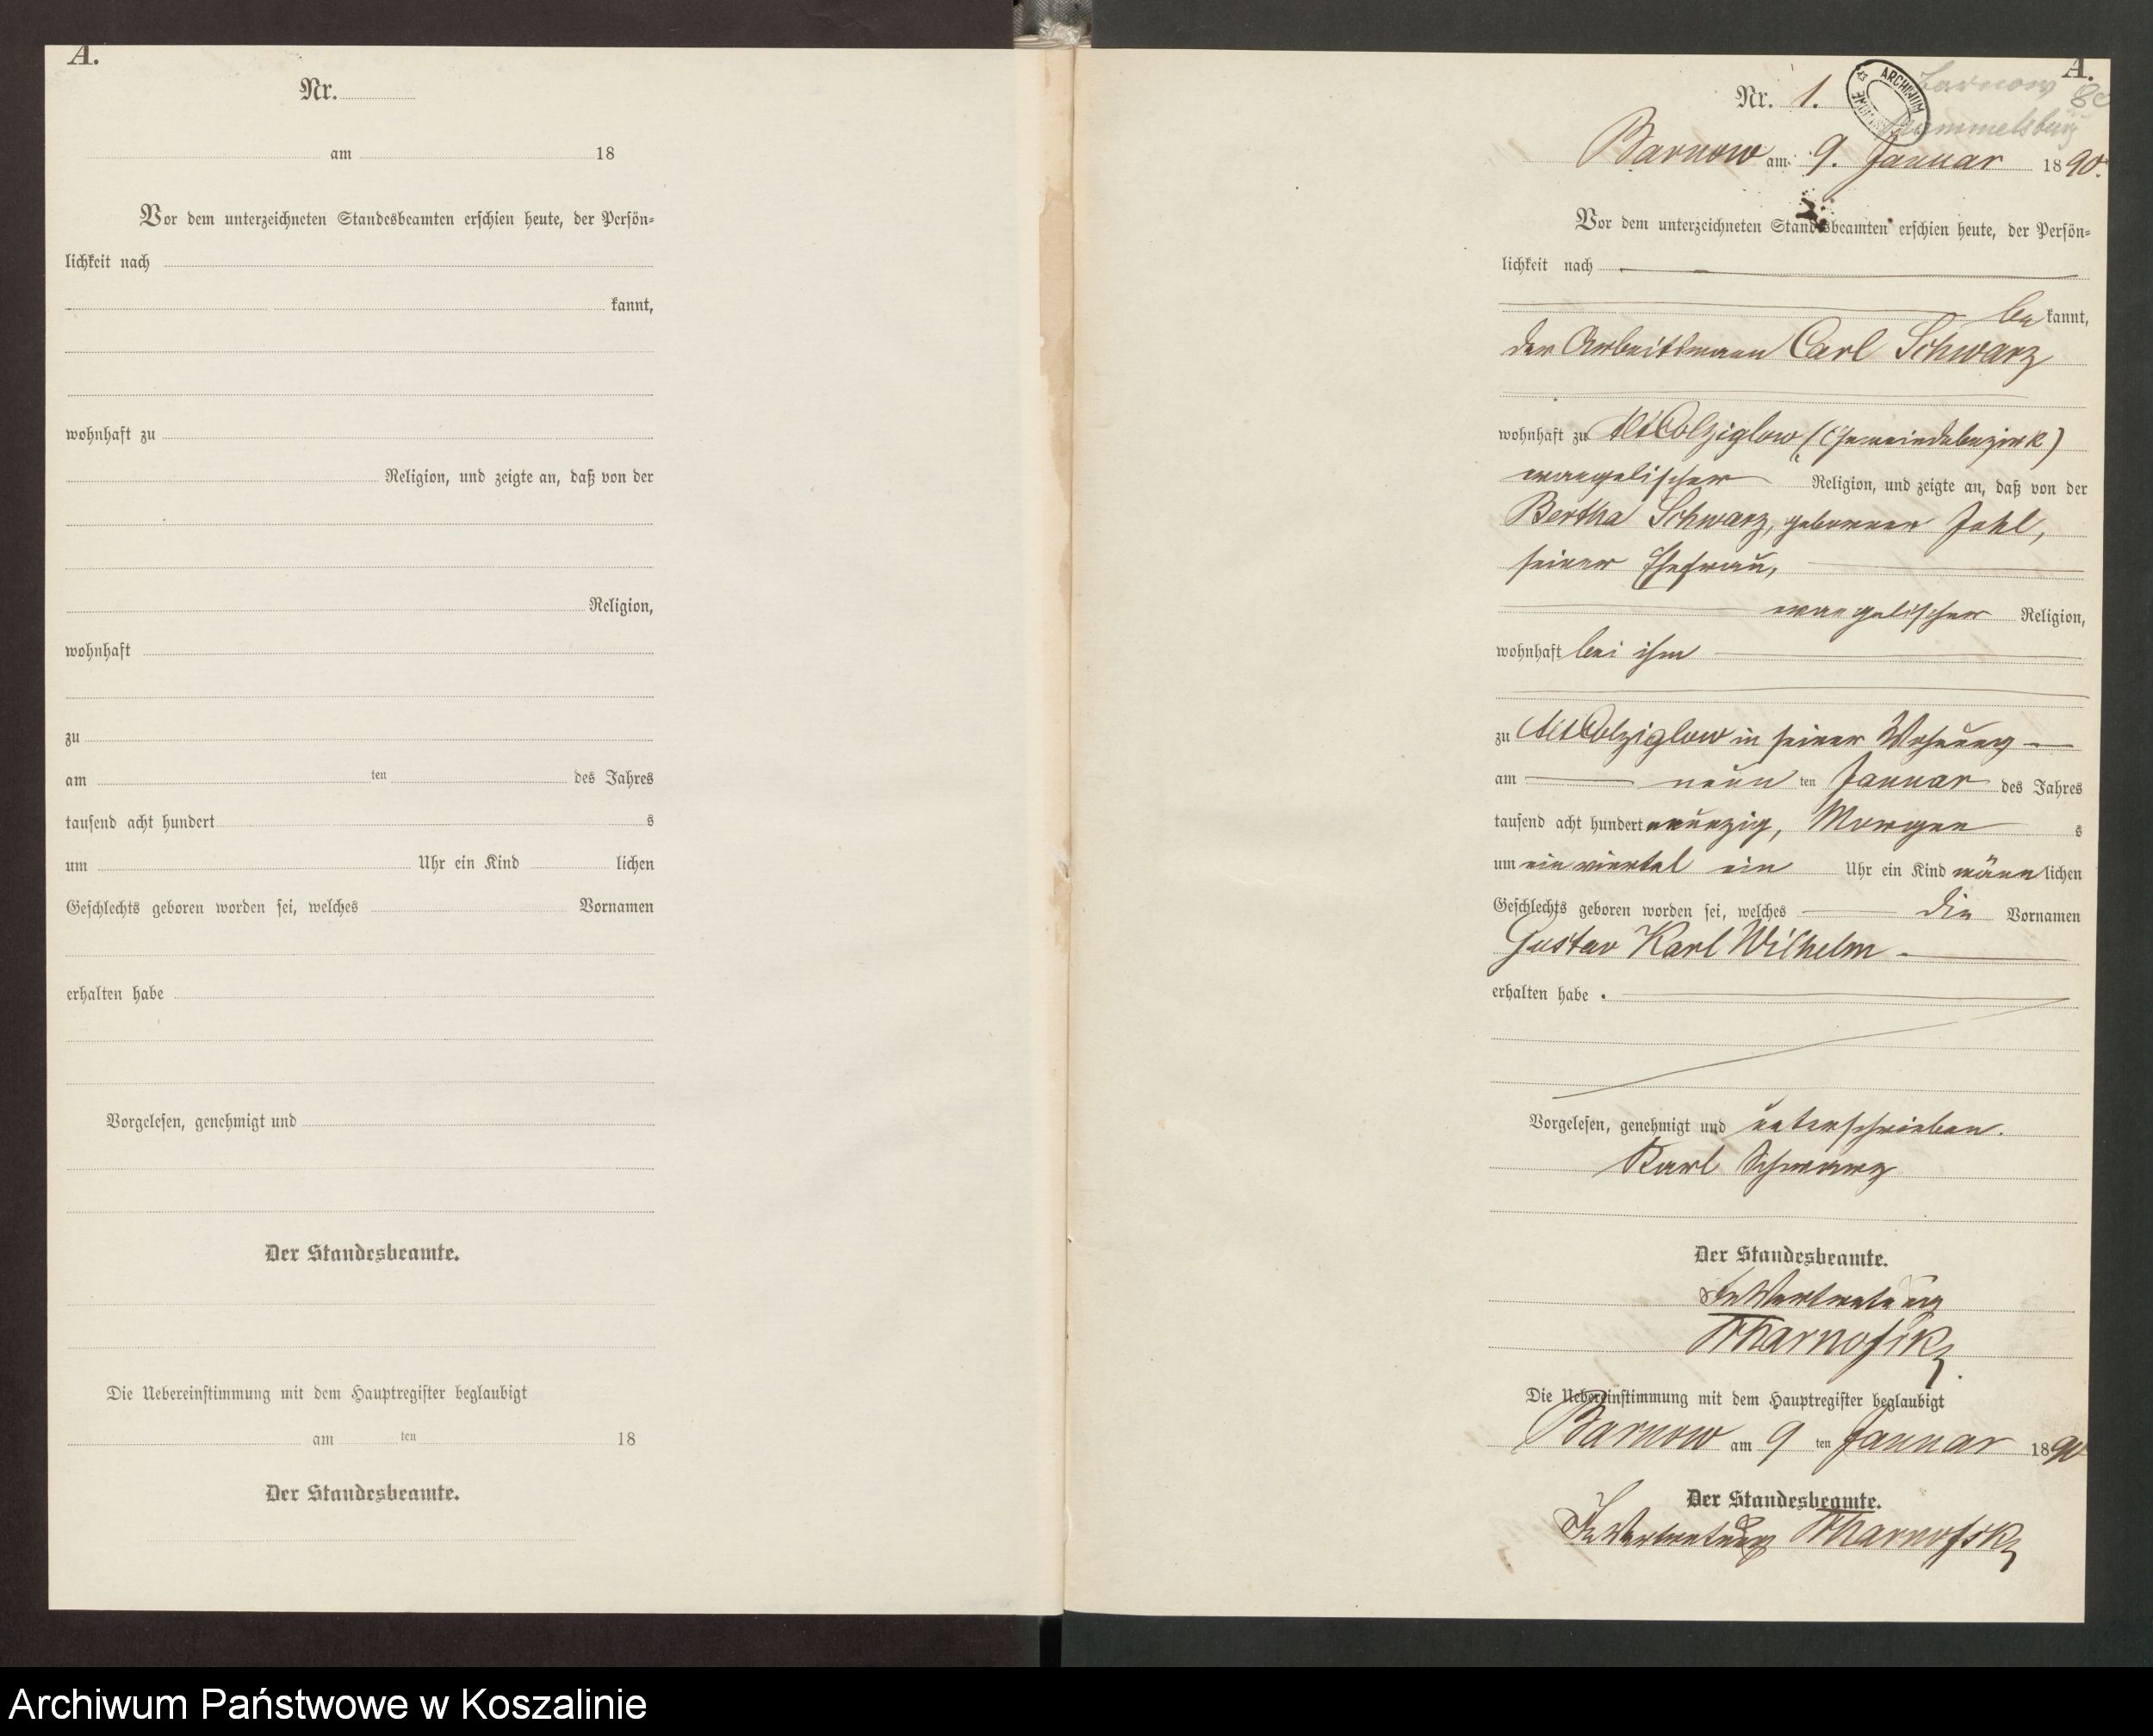 A.
Nr.
am 18
Vor dem unterzeichneten Standesbeamten erschien heute, der Persön-
lichkeit nach
kannt,
wohnhaft zu
Religion, und zeigte an, daß von der
Religion,
wohnhaft
zu
am ten des Jahres
tausend acht hundert s
um Uhr ein Kind lichen
Geschlechts geboren worden sei, welches Vornamen
erhalten habe
Vorgelesen, genehmigt und
Der Standesbeamte.
Die Uebereinstimmung mit dem Hauptregister beglaubigt
am ten 18
Der Standesbeamte.
A.
Nr. 1.
ARCHIWUM
Barnow am 9. Januar 1890.
Vor dem unterzeichneten Standesbeamten erschien heute, der Persön-
lichkeit nach
be kannt,
der Arbeitsmann Carl Schwarz
wohnhaft zu Alt Colziglow (Gemeindebezirk)
evangelischer Religion, und zeigte an, daß von der
Bertha Schwarz, geborenen Johl,
seiner Ehefrau,
evangelischer Religion,
wohnhaft bei ihm
zu Alt Colziglow in seiner Wohnung
am neun ten Januar des Jahres
tausend acht hundert neunzig, Morgen s
um ein viertel ein Uhr ein Kind männ lichen
Geschlechts geboren worden sei, welches die Vornamen
Gustav Karl Wilhelm
erhalten habe.
Vorgelesen, genehmigt und unterschrieben.
Karl Schwarz
Der Standesbeamte.
In Vertretung
Die Uebereinstimmung mit dem Hauptregister beglaubigt
Barnow am 9 ten Januar 1890
Der Standesbeamte.
In Vertretung
Archiwum Państwowe w Koszalinie